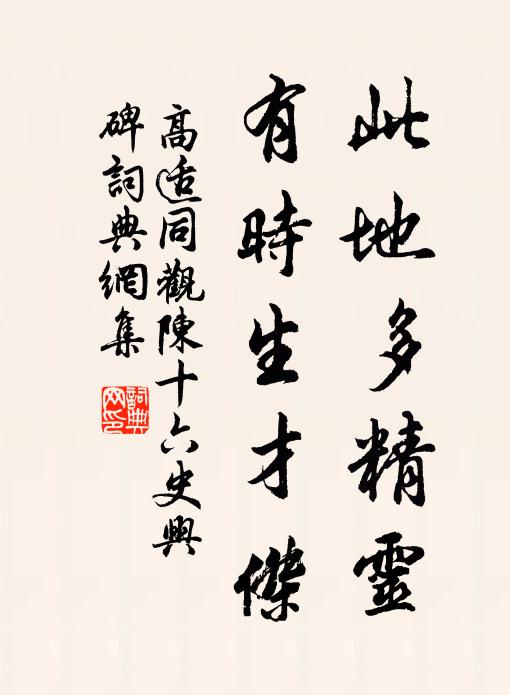 此地多精靈
有時生才傑
高适同觀陳十六史興
碑詞典網集
詞典网印